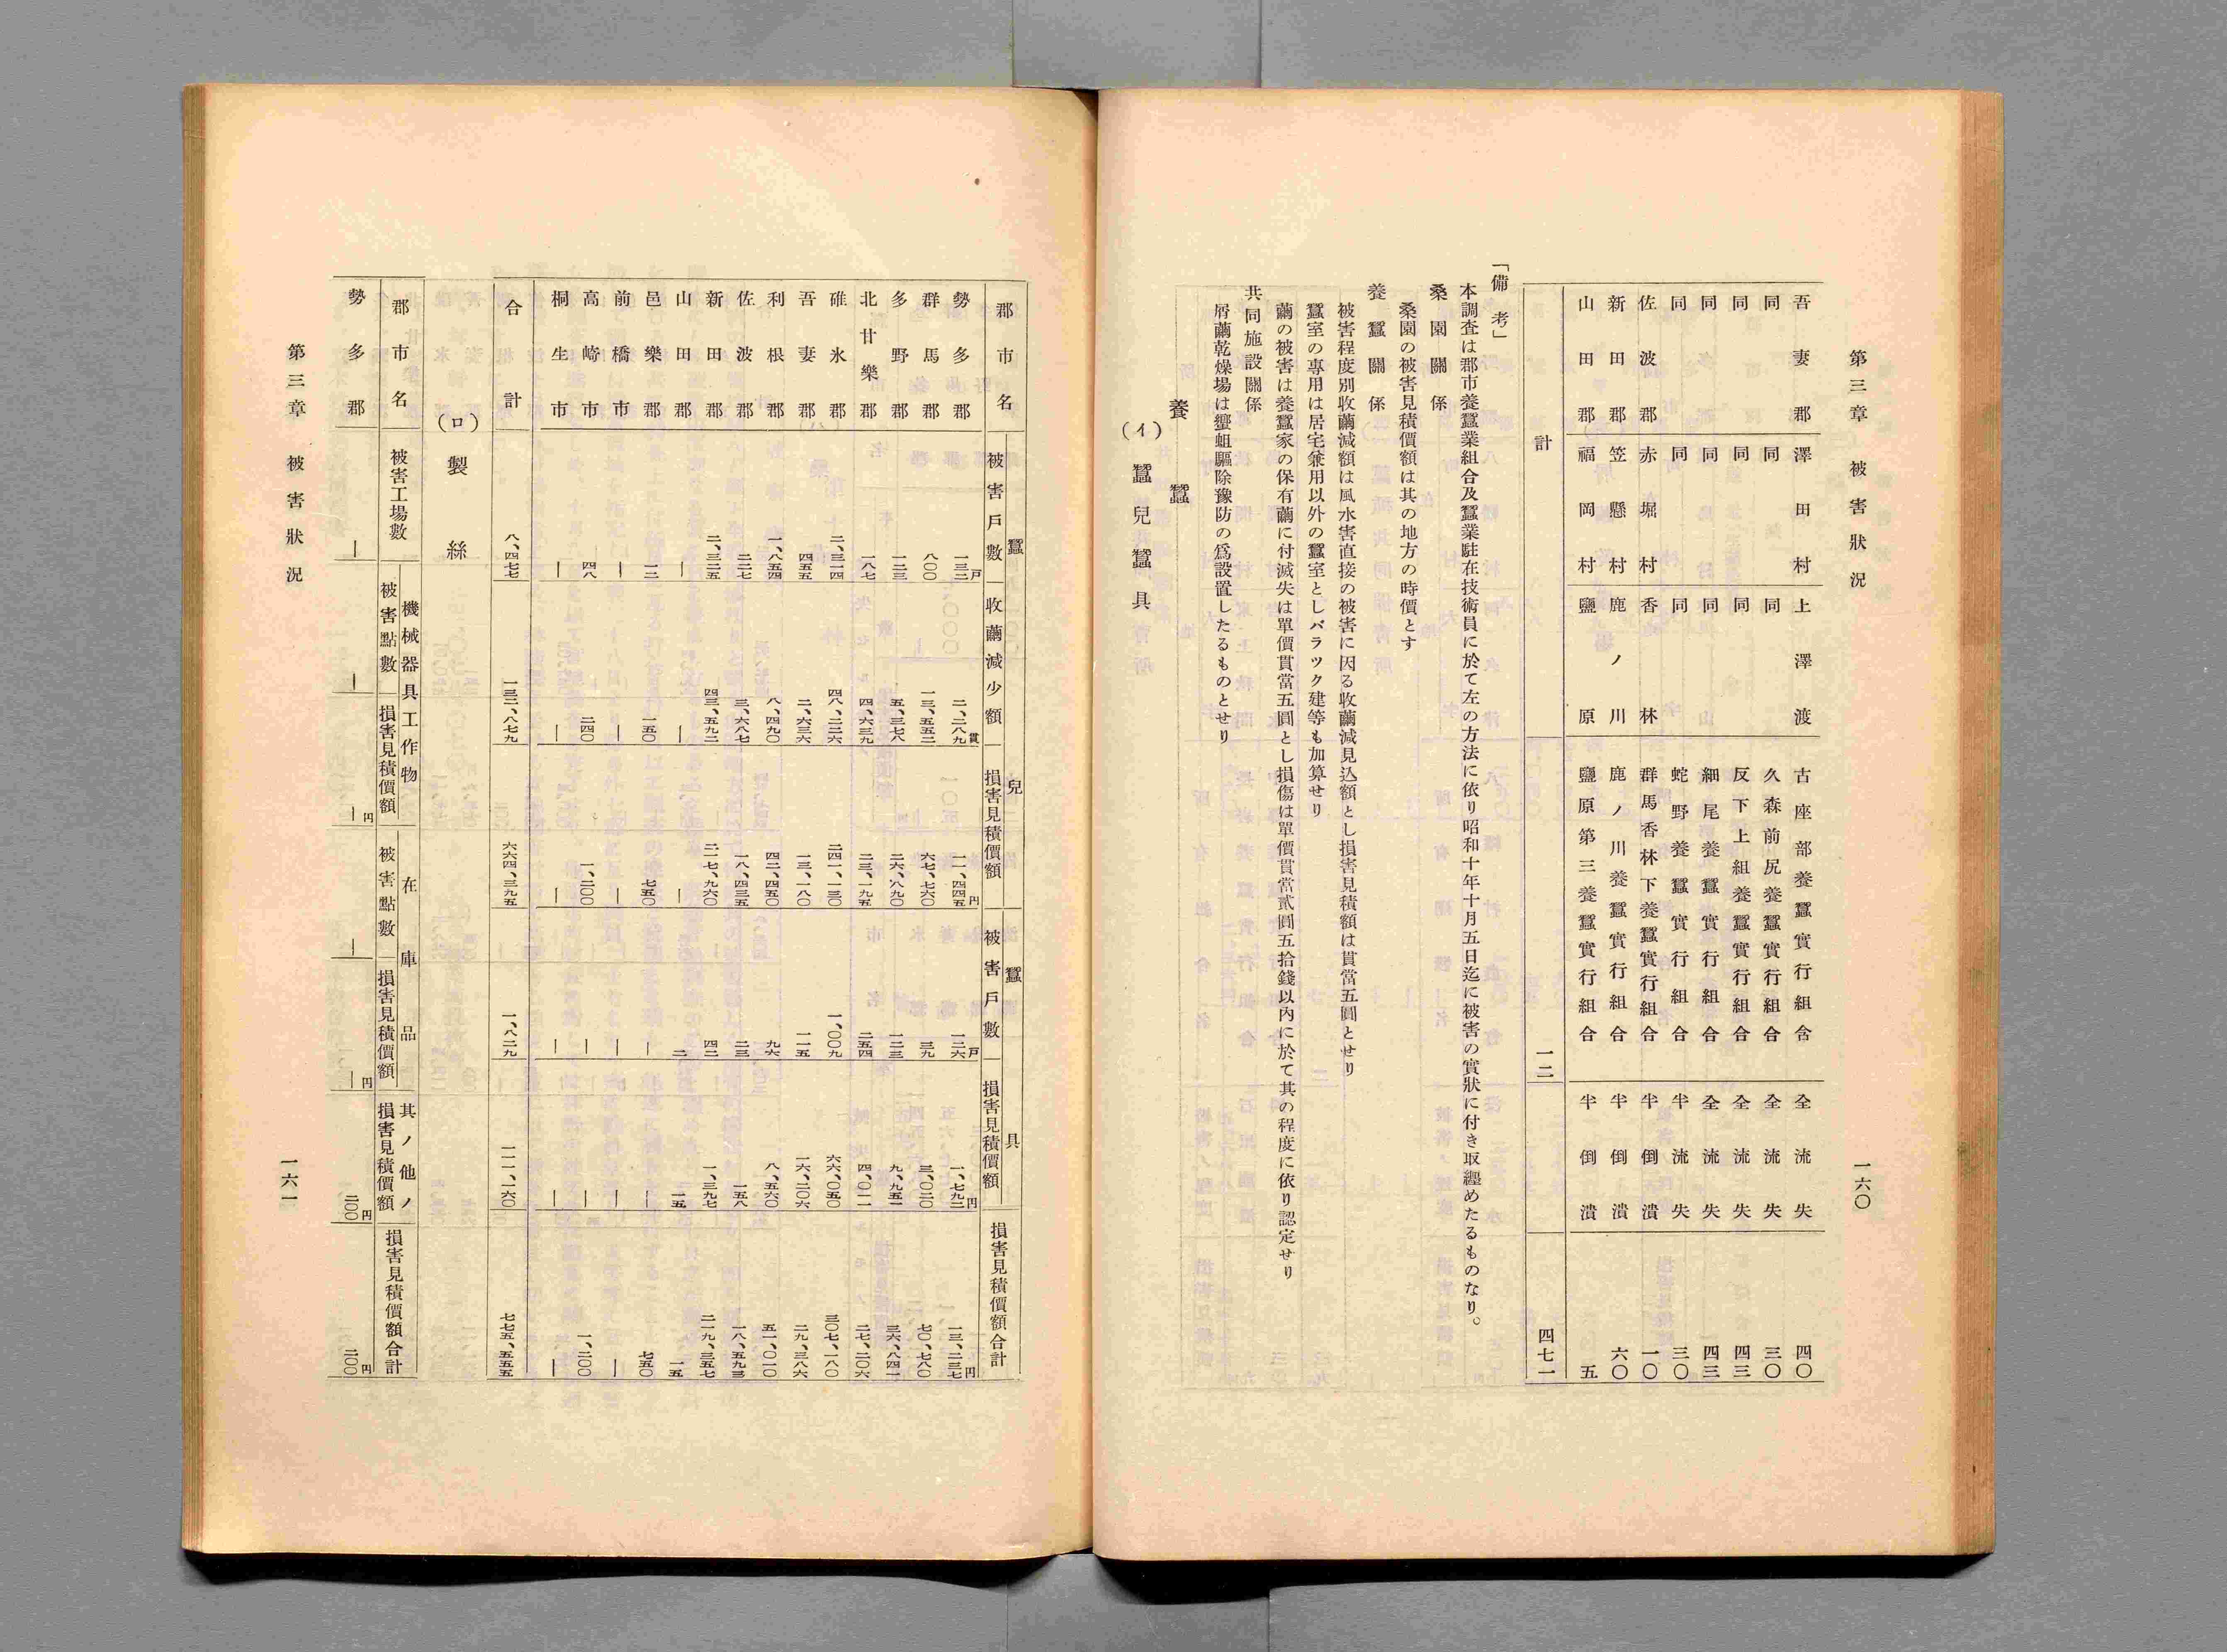 第三章 被害狀況
一六〇
吾妻郡 澤田村 上澤渡 古座部養蠶實行組合 全流失 四〇
同 同 同 久森前尻養蠶實行組合 全流失 三〇
同 同 同 反下上組養蠶實行組合 全流失 四三
同 同 同 細尾養蠶實行組合 全流失 四三
同 同 同 蛇野養蠶實行組合 半流失 三〇
佐波郡 赤堀村 香林 群馬香林下養蠶實行組合 半倒潰 一〇
新田郡 笠懸村 鹿ノ川 鹿ノ川養蠶實行組合 半倒潰 六〇
山田郡 福岡村 鹽原 鹽原第三養蠶實行組合 半倒潰 五
計 一二 四七一
「備考」
本調査は郡市養蠶業組合及蠶業駐在技術員に於て左の方法に依り昭和十年十月五日迄に被害の實狀に付き取纒めたるものなり。
桑園關係
桑園の被害見積價額は其の地方の時價とす
養蠶關係
被害程度別收繭減額は風水害直接の被害に因る收繭減見込額とし損害見積額は貫當五圓とせり
蠶室の專用は居宅兼用以外の蠶室としバラック建等も加算せり
繭の被害は養蠶家の保有繭に付滅失は單價貫當五圓とし損傷は單價貫當貳圓五拾錢以内に於て其の程度に依り認定せり
共同施設關係
屑繭乾燥場は蠁蛆驅除豫防の爲設置したるものとせり
養蠶
(イ) 蠶兒蠶具
郡市名 蠶兒 被害戶數 收繭減少額 損害見積價額 蠶具 被害戶數 損害見積價額 損害見積價額合計
勢多郡 一三二戶 二、二八九貫 一一、四四五円 一二六戶 一、七九二円 一三、二三七円
群馬郡 八〇〇 一三、五五二 六七、七六〇 三九 三、〇二〇 七〇、七八〇
多野郡 一二三 五、三七八 二六、八九〇 一二三 九、九五一 三六、八四一
北甘樂郡 一八七 四、六三九 二三、一九五 二五四 四、〇一一 二七、二〇六
碓氷郡 二、三一四 四八、二二六 二四一、一三〇 一、〇〇九 六六、〇五〇 三〇七、一八〇
吾妻郡 四五五 二、六三六 一三、一八〇 一一五 一六、二〇六 二九、三八六
利根郡 一、八五四 八、四九〇 四二、四五〇 九六 八、五六〇 五一、〇一〇
佐波郡 二二七 三、六八七 一八、四三五 二三 一五八 一八、五九三
新田郡 二、三二五 四三、五九二 二一七、九六〇 四二 一、三九七 二一九、三五七
山田郡 ― ― ― 二 一五 一五
邑樂郡 一二 一五〇 七五〇 ― ― 七五〇
前橋市 ― ― ― ― ― ―
高崎市 四八 二四〇 一、二〇〇 ― ― 一、二〇〇
桐生市 ― ― ― ― ― ―
合計 八、四七七 一三二、八七九 六六四、三九五 一、八二九 一一一、一六〇 七七五、五五五
(ロ) 製絲
郡市名 被害工場數 機械器具工作物 被害點數 損害見積價額 在庫品 被害點數 損害見積價額 其ノ他ノ損害見積價額 損害見積價額合計
勢多郡 ― ― ―円 ― ―円 三〇〇円 三〇〇円
第三章 被害狀況
一六一